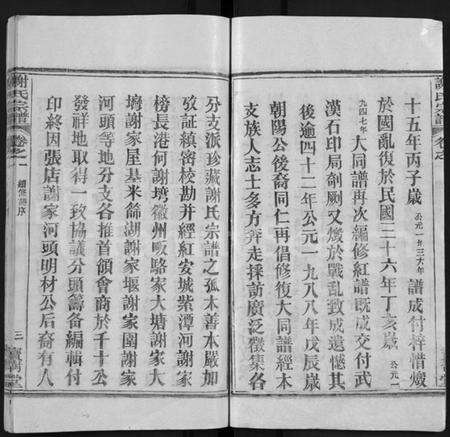 謝氏宗譜
卷之
十五年丙子歲公元一九三六年譜成付梓惜燬
於國亂復於民國三十六年丁亥歲公元一
九四七年大同譜再次編修紅譜既成交付武
漢石印局剞劂又燬於戰亂致成遺憾其
後逾四十二年公元一九八八年戊辰歲
朝陽公後裔同仁再倡修復大同譜經各
支族人志士多方奔走採訪廣泛徵集各
分支派珍藏謝氏宗譜之孤本善本嚴加
攷証縝密校勘并經紅安城紫潭河謝家
榜長港何謝塆徽州畈駱家大塘謝家大
塆謝家屋基米餘湖謝家堰謝家園謝家
河頭等地分支各推首領會商於千十公
發祥地取得一致協議分頭籌备編輯付
印終因張店謝家河頭明材公后裔有人
謝氏宗譜
卷之一
續修譜序
三
寶樹堂